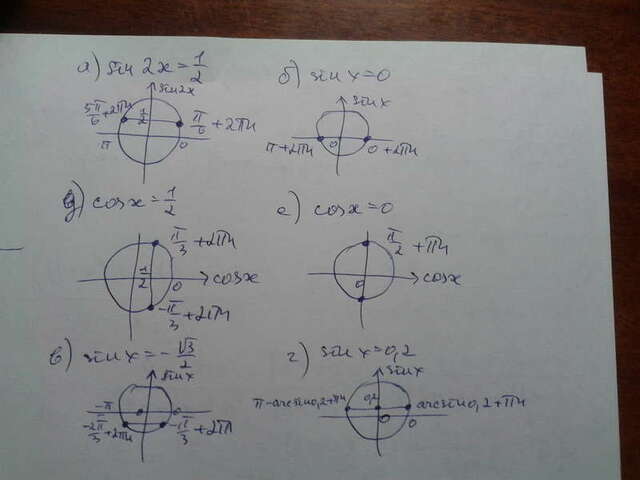 а) sin 2x = 1/2
sin 2x
5π/6 + 2πn
1/2
π/6 + 2πn
π
0
б) sin x = 0
sin x
π + 2πn
0
0 + 2πn
д) cos x = 1/2
π/3 + 2πn
1/2
0
cos x
-π/3 + 2πn
е) cos x = 0
π/2 + πn
0
cos x
в) sin x = -√3/2
sin x
-π
0
0
-2π/3 + 2πn
-π/3 + 2π
г) sin x = 0,2
sin x
π-arcsin0,2+πn
0,2
arcsin0,2+πn
0
0